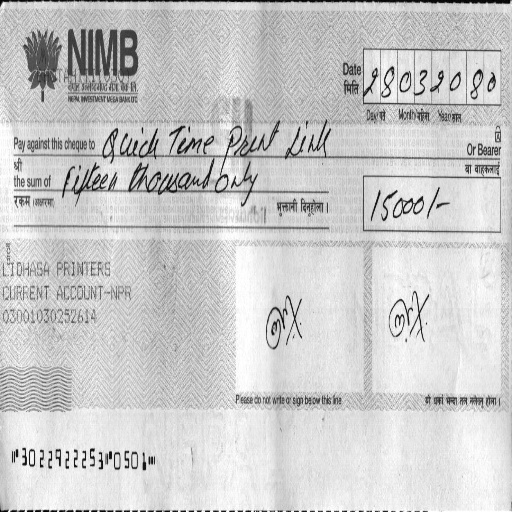 NIMB
नेपाल इन्भेष्टमेन्ट मेगा बैंक लि.
NEPAL INVESTMENT MEGA BANK LTD.
Date 28032080
मिति
Day गते Month महिना Year साल
Pay against this cheque to Quick Time Print Link Or Bearer
श्री वा वाहकलाई
the sum of Fifteen thousand only
रकम (अक्षरमा) भुक्तानी दिनुहोला । 15000/-
LIDHASA PRINTERS
CURRENT ACCOUNT-NPR
03001030252614
Please do not write or sign below this line
⑈3022922253⑈0501⑈